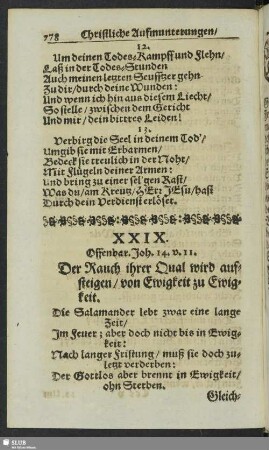 778 Christliche Aufmunterungen/
12.
Um deinen Todes-Kampff und Flehn/
Laß in der Todes-Stunden
Auch meinen letzten Seufftzer gehn
Zu dir/durch deine Wunden:
Und wenn ich hin aus diesem Liecht/
So stelle/zwischen dem Gericht
Und mir/dein bittres Leiden!
13.
Verbirg die Seel in deinem Tod'/
Umgib sie mit Erbarmen/
Bedeck sie treulich in der Noht/
Mit Flügeln deiner Armen:
Und bring zu einer sel'gen Rast/
Was du/am Kreutz/HErr JEsu/hast
Durch dein Verdienst erlöset.
XXIX.
Offenbar. Joh. 14. v. 11.
Der Rauch ihrer Qual wird auf-
steigen/von Ewigkeit zu Ewig-
keit.
Die Salamander lebt zwar eine lange
Zeit/
Im Feuer; aber doch nicht bis in Ewig-
keit:
Nach langer Fristung/muß sie doch zu-
letzt verderben:
Der Gottlos aber brennt in Ewigkeit/
ohn Sterben.
Gleich-
SLUB